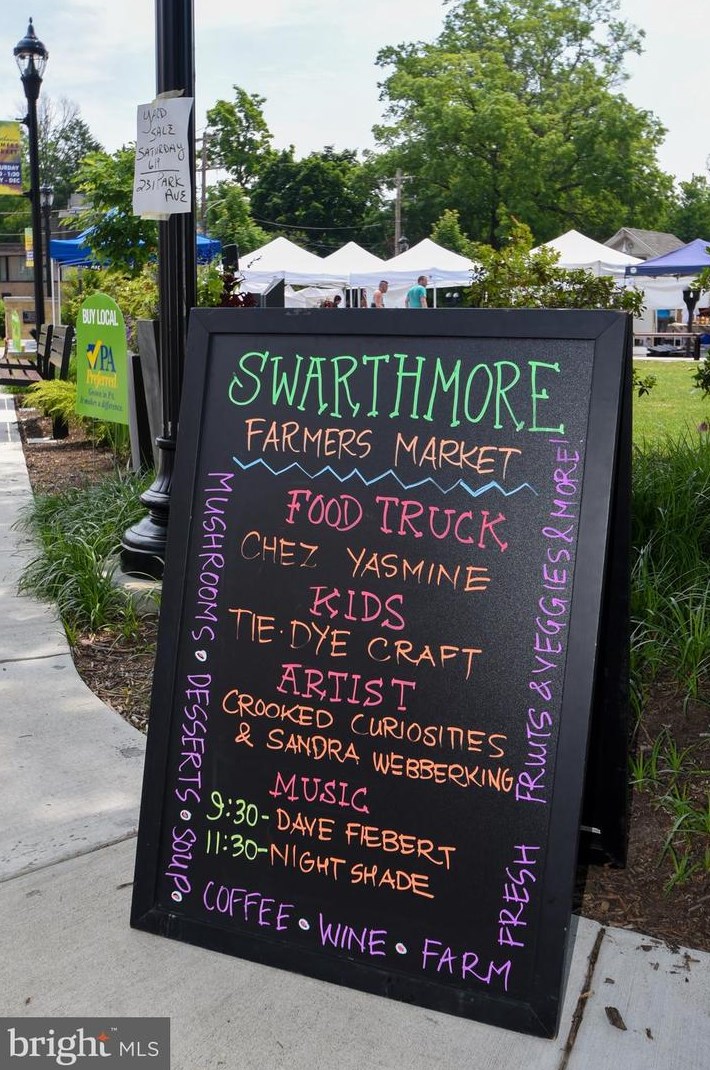 YARD
SALE
SATURDAY
231 PARK
AVE
BUY LOCAL
PA
Preferred
SWARTHMORE
FARMERS MARKET
FOOD TRUCK
CHEZ YASMINE
KIDS
TIE·DYE CRAFT
ARTIST
CROOKED CURIOSITIES
& SANDRA WEBBERKING
MUSIC
9:30- DAVE FIEBERT
11:30- NIGHT SHADE
MUSHROOMS • DESSERTS • SOUP •
COFFEE • WINE • FARM
FRESH FRUITS & VEGGIES & MORE!
bright MLS
™